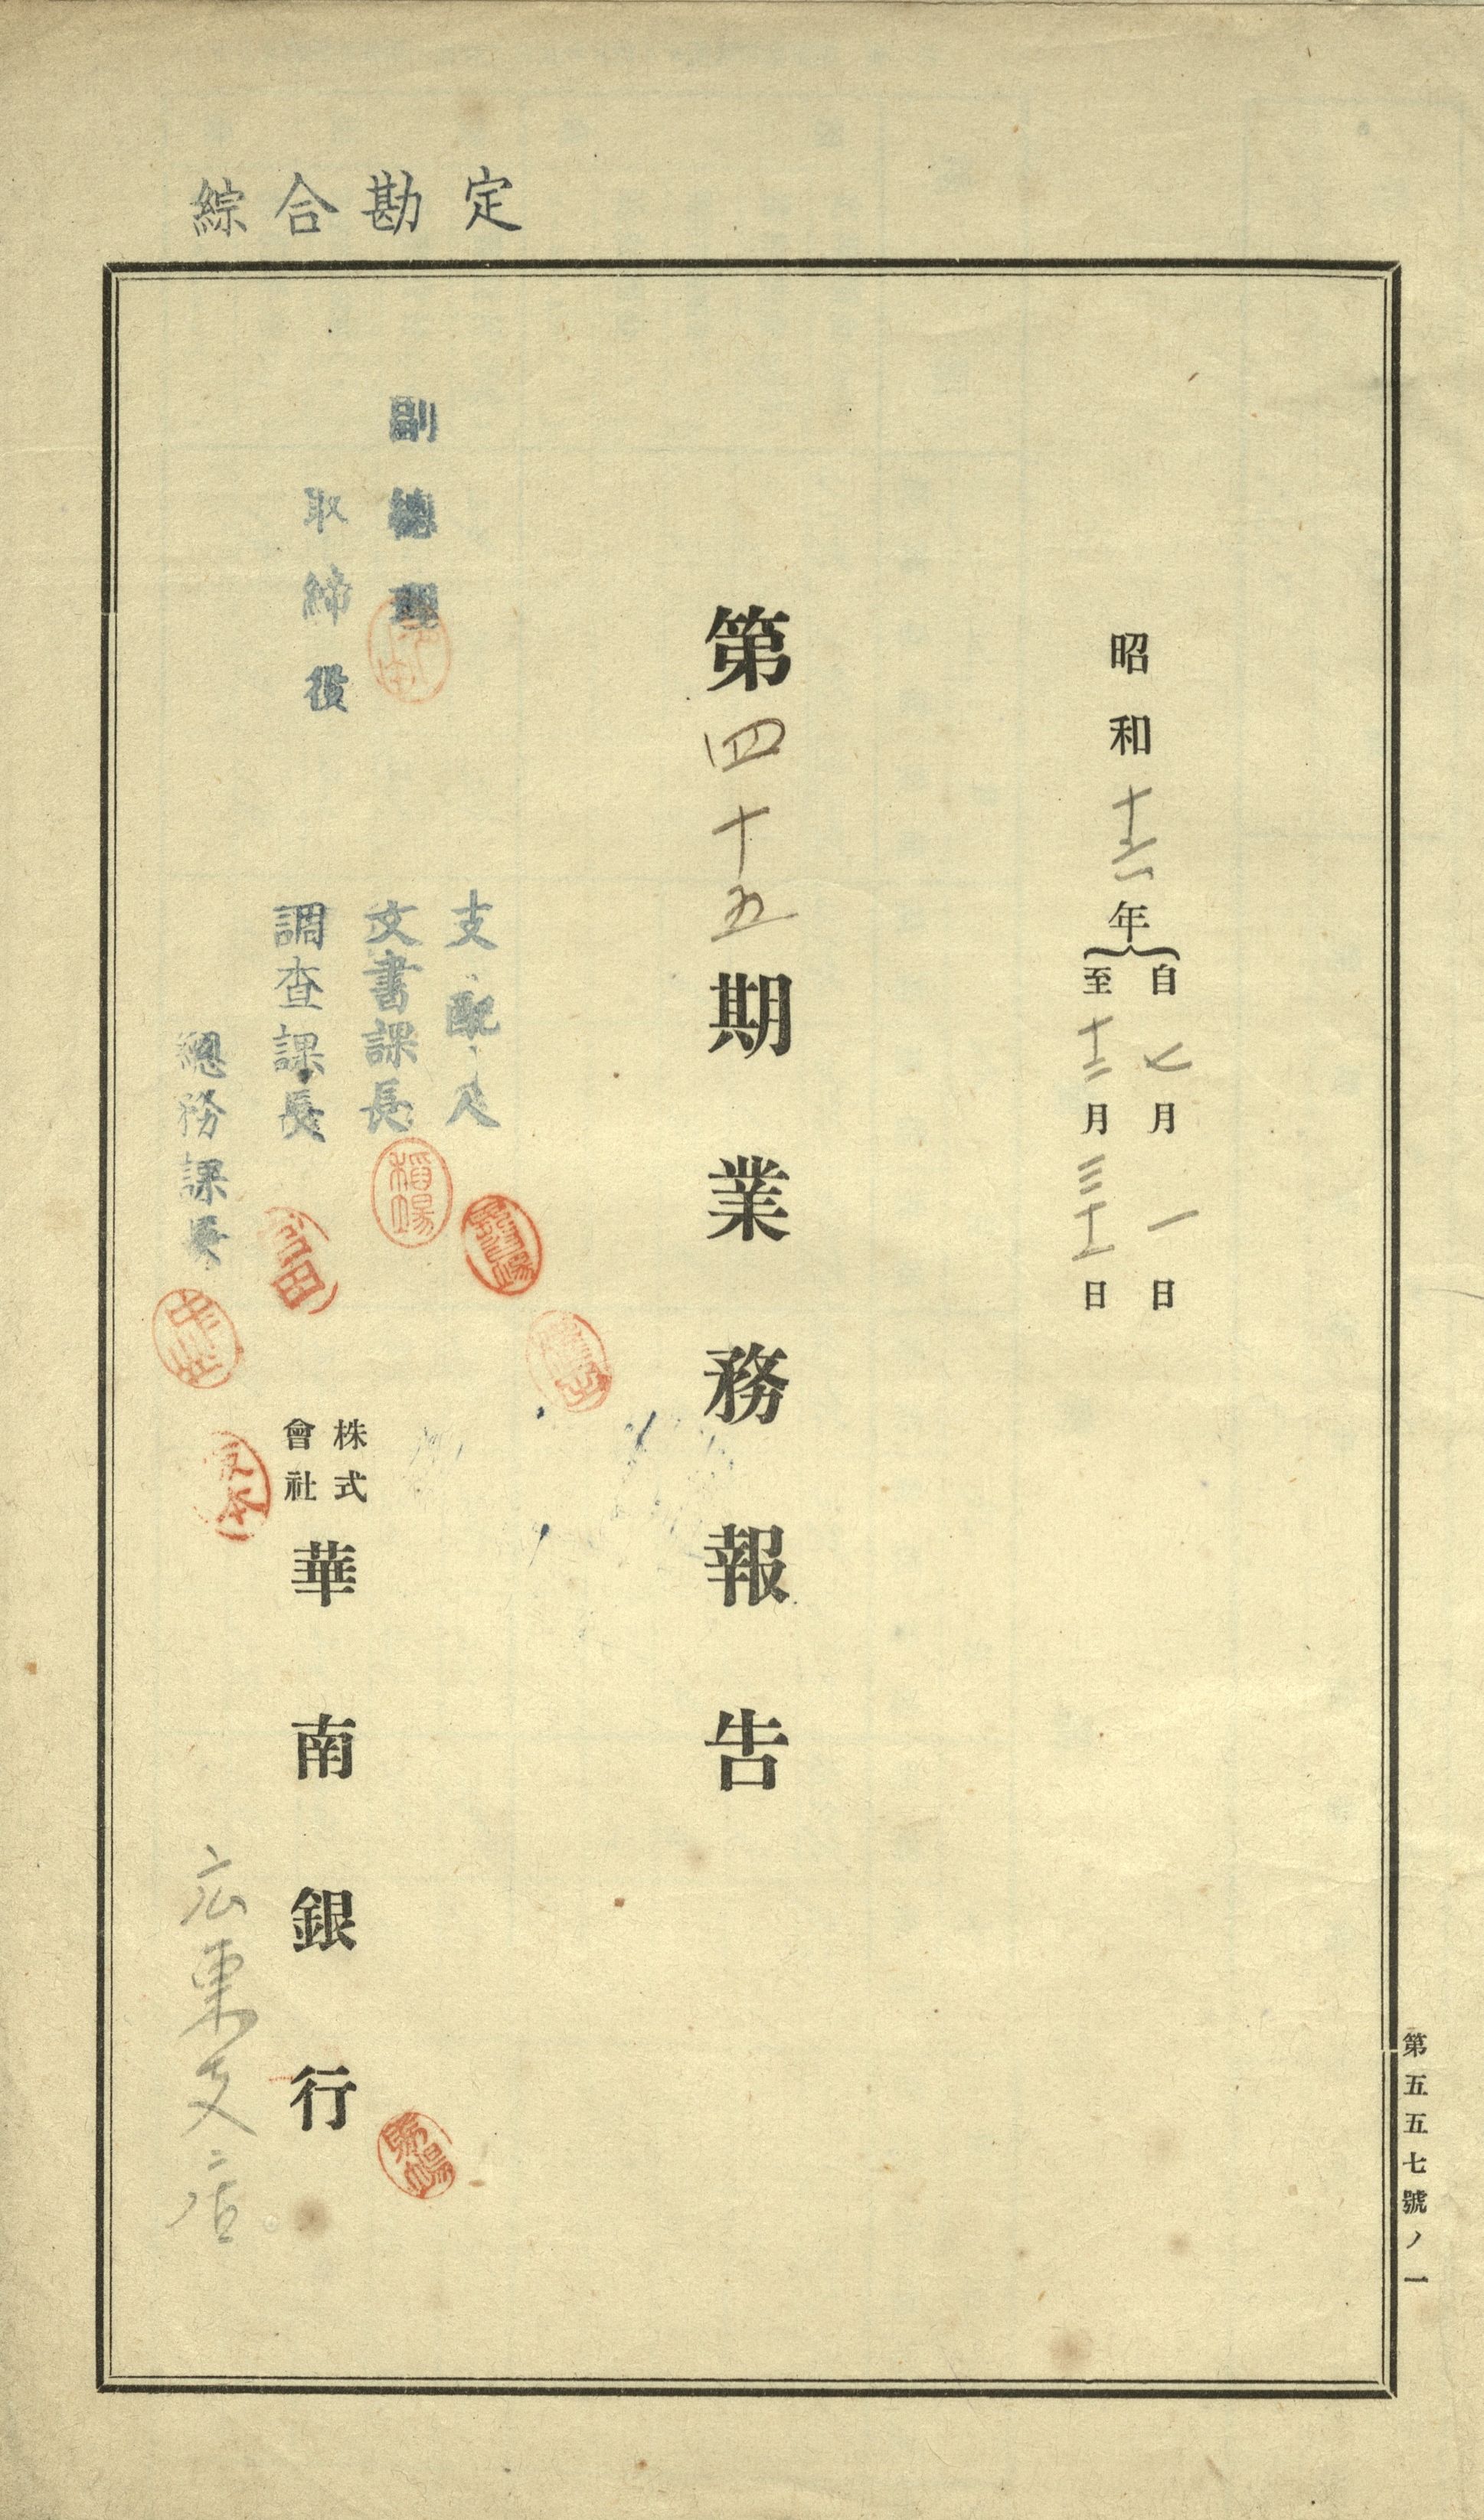 綜合勘定
昭和十六年
自七月一日
至十二月三十一日
第四十五期業務報告
副總理
取締役
支配人
文書課長
調査課長
總務課長
株式
會社
華南銀行
広東支店
第五五七號ノ一